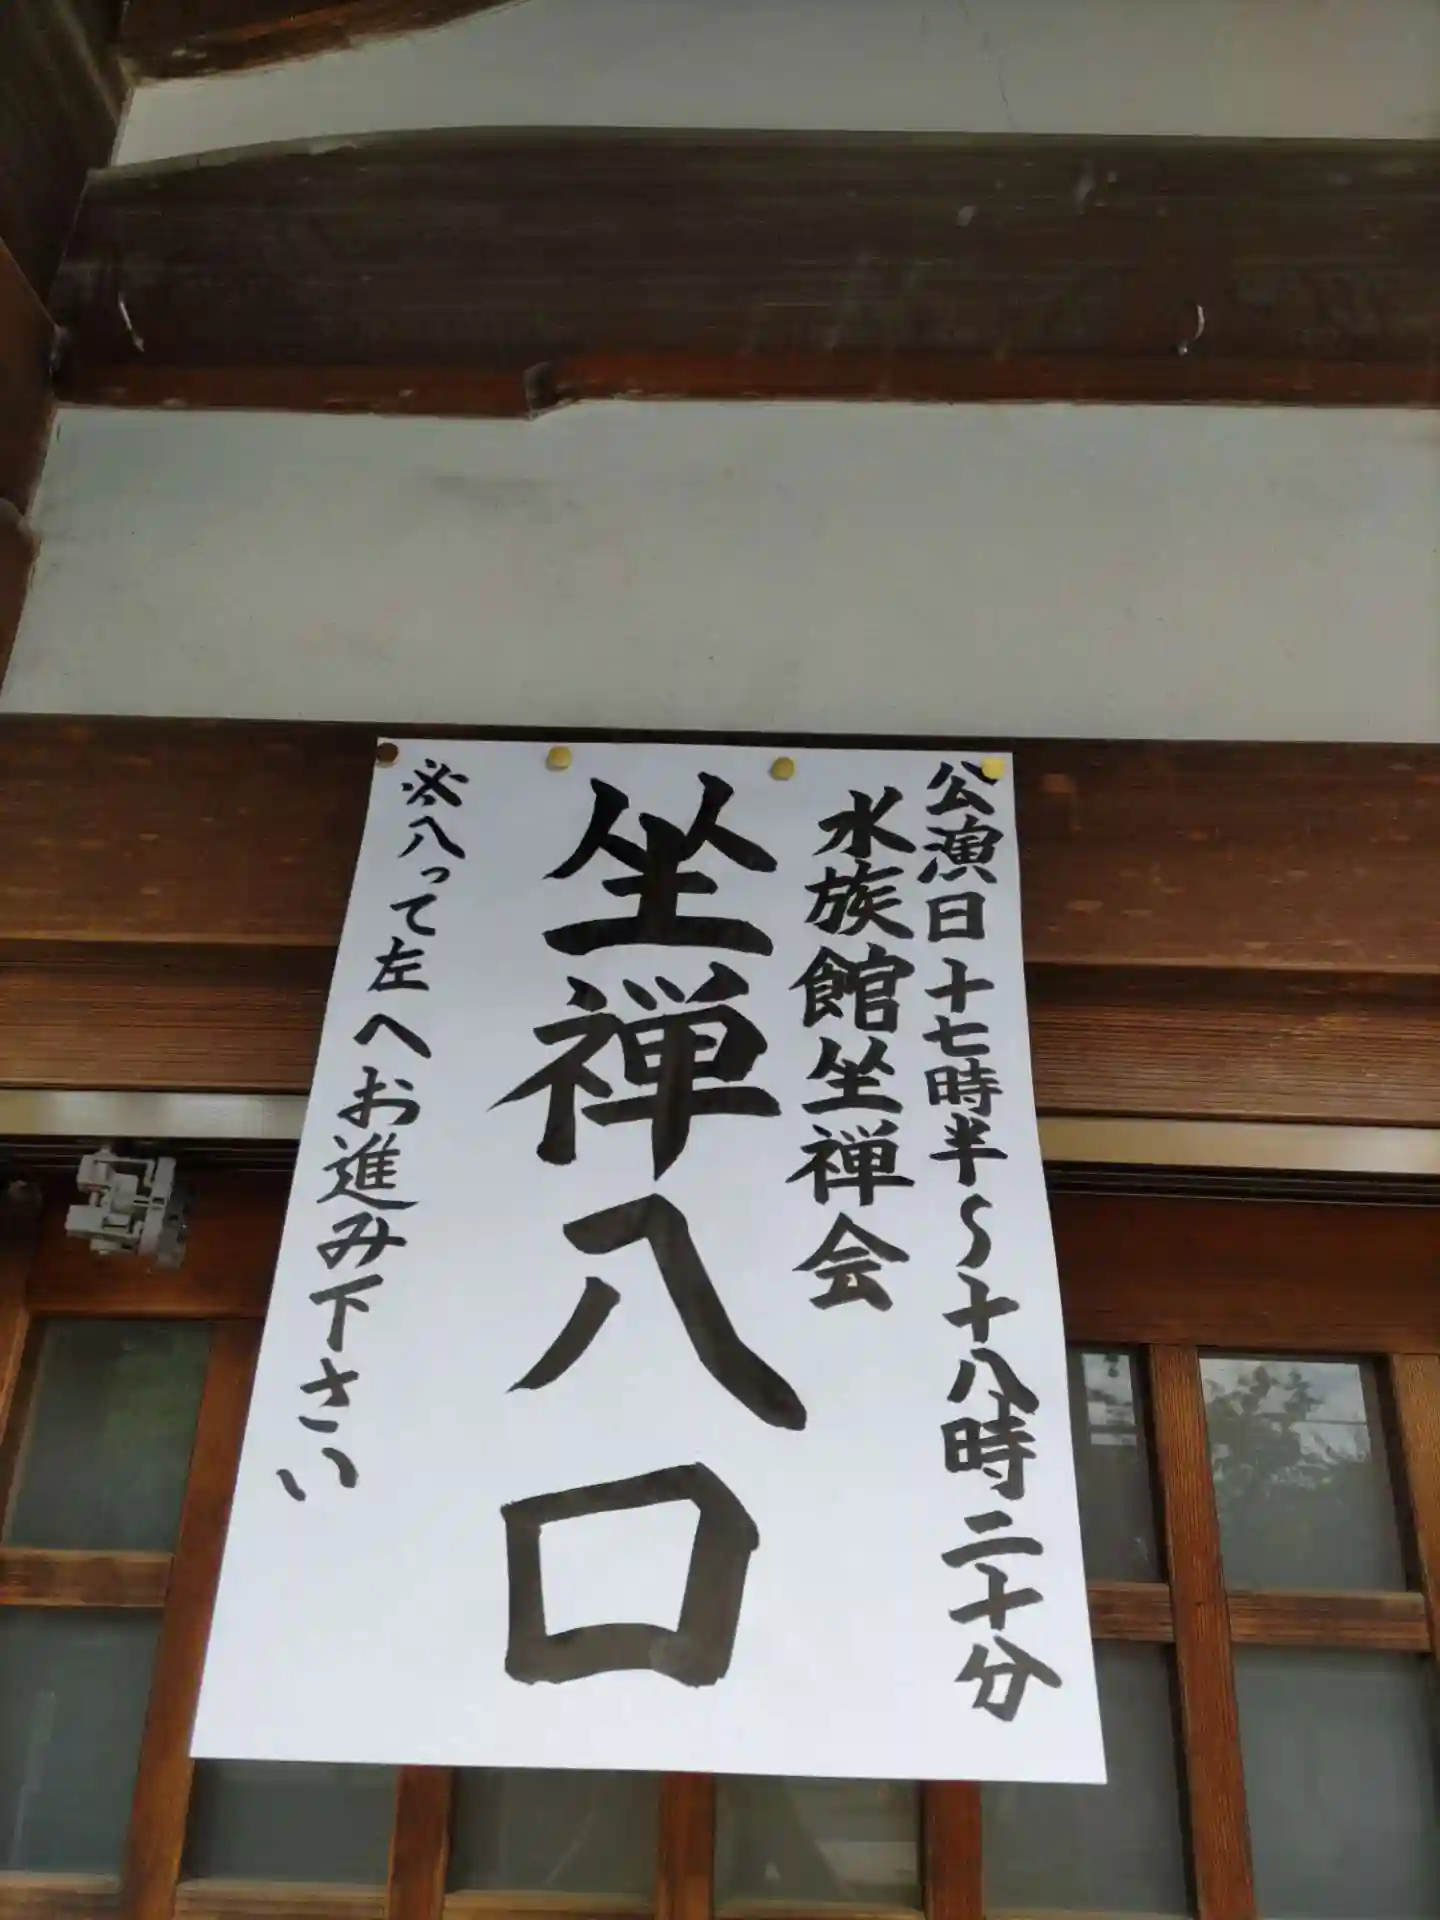 公演日十七時半〜十八時二十分
水族館坐禅会
坐禅入口
※入って左へお進み下さい